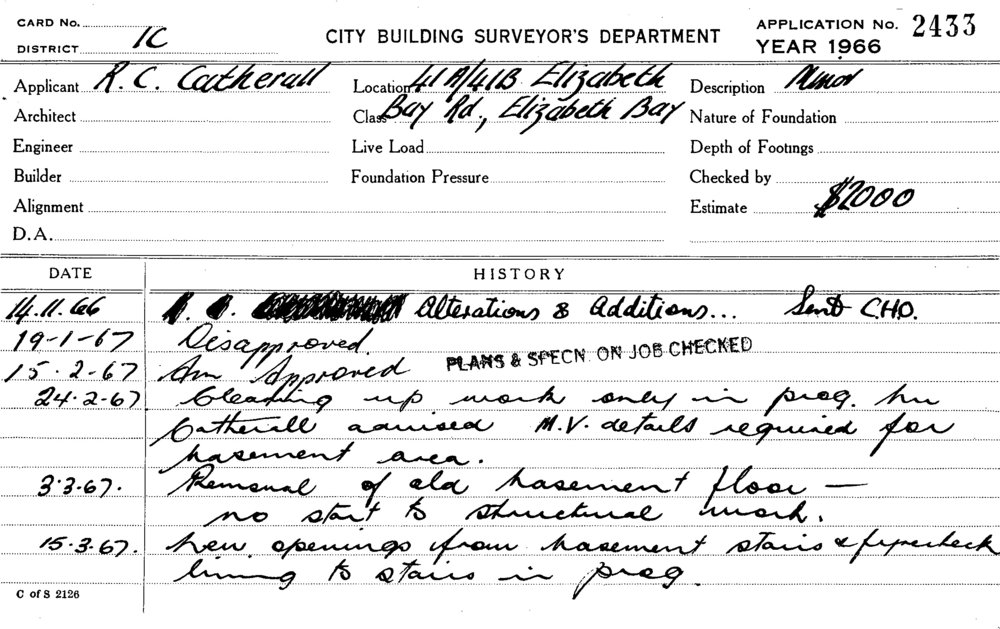 CARD No.
DISTRICT 1C
CITY BUILDING SURVEYOR'S DEPARTMENT
APPLICATION No. 2433
YEAR 1966
Applicant R. C. Catherall
Location 41A/41B Elizabeth
Description Minor
Architect
Class Bay Rd., Elizabeth Bay
Nature of Foundation
Engineer
Live Load
Depth of Footings
Builder
Foundation Pressure
Checked by
Alignment
Estimate $2000
D.A.
DATE HISTORY
14.11.66 Alterations & Additions... Sent C.H.O.
19-1-67 Disapproved.
15.2-67 Am Approved PLANS & SPECN. ON JOB CHECKED
24.2-67 Cleaning up work only in prog. Mr
Catherall advised M.V. details required for
basement area.
3.3.67. Removal of old basement floor —
no start to structural work.
15.3.67. New openings from basement stairs & fyrecheck
lining to stairs in prog.
C of S 2126